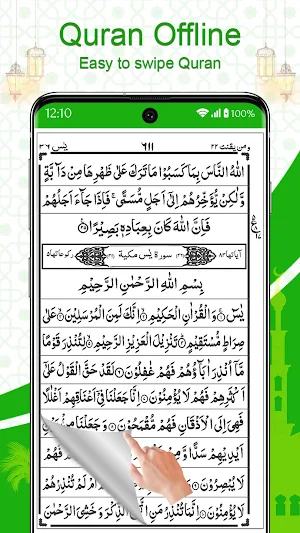 Quran Offline
Easy to swipe Quran
12:10
100%
يٰسٓ ٣٦
٦١١
ومن يقنت ٢٢
اللّٰهُ النَّاسَ بِمَا كَسَبُوْا مَا تَرَكَ عَلٰى ظَهْرِهَا مِنْ دَآبَّةٍ
وَّلٰكِنْ يُّؤَخِّرُهُمْ اِلٰٓى اَجَلٍ مُّسَمًّى ۚ فَاِذَا جَآءَ اَجَلُهُمْ
فَاِنَّ اللّٰهَ كَانَ بِعِبَادِهٖ بَصِيْرًا
اٰياتها ٨٣
سورة يٰسٓ مكية
ركوعاتها ٥
بِسْمِ اللّٰهِ الرَّحْمٰنِ الرَّحِيْمِ
يٰسٓ ۚ وَالْقُرْاٰنِ الْحَكِيْمِ ۙ اِنَّكَ لَمِنَ الْمُرْسَلِيْنَ ۙ عَلٰى
صِرَاطٍ مُّسْتَقِيْمٍ ۗ تَنْزِيْلَ الْعَزِيْزِ الرَّحِيْمِ ۙ لِتُنْذِرَ قَوْمًا
مَّآ اُنْذِرَ اٰبَآؤُهُمْ فَهُمْ غٰفِلُوْنَ ۞ لَقَدْ حَقَّ الْقَوْلُ عَلٰٓى
اَكْثَرِهِمْ فَهُمْ لَا يُؤْمِنُوْنَ ۞ اِنَّا جَعَلْنَا فِيْٓ اَعْنَاقِهِمْ اَغْلٰلًا
فَهِيَ اِلَى الْاَذْقَانِ فَهُمْ مُّقْمَحُوْنَ ۞ وَجَعَلْنَا مِنْۢ بَيْنِ
اَيْدِيْهِمْ سَدًّا وَّمِنْ
لَا يُبْصِرُوْنَ
لَا يُؤْمِنُوْنَ ۞ اِنَّمَا تُنْذِرُ مَنِ اتَّبَعَ الذِّكْرَ وَخَشِيَ الرَّحْمٰنَ